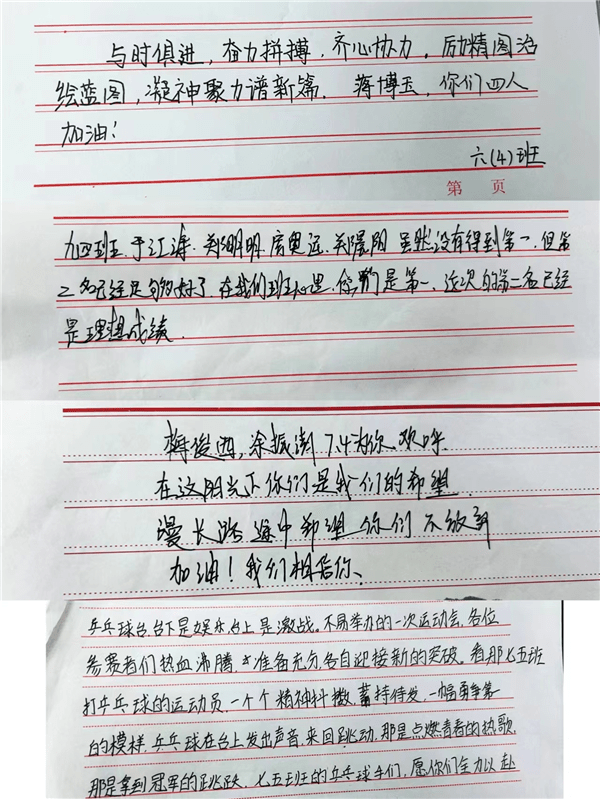 与时俱进，奋力拼搏，齐心协力，励精图治
绘蓝图，凝神聚力谱新篇。 蒋博玉，你们四人
加油！
六(4)班
第 页
九四班 于江涛.郑明明.席奥远.郑晨阳 虽然没有得到第一.但第
2名已经足够好了.在我们班心里.你们是第一.这次的第二名已经
是理想成绩.
梅俊西,余振澍 7.4为你欢呼
在这阳光下你们是我们的希望
漫长路途中希望你们不放弃
加油！我们相信你、
乒乓球台.台下是娱乐台上是激战。不易举办的一次运动会.各位
参赛者们热血沸腾,准备充分各自迎接新的突破。看那七五班
打乒乓球的运动员.一个个精神抖擞.蓄持待发.一幅勇争第
的模样.乒乓球在台上发出声音.来回跳动.那是点燃青春的热歌.
那是拿到冠军的跳跃.七五班的乒乓球手们,愿你们全力以赴